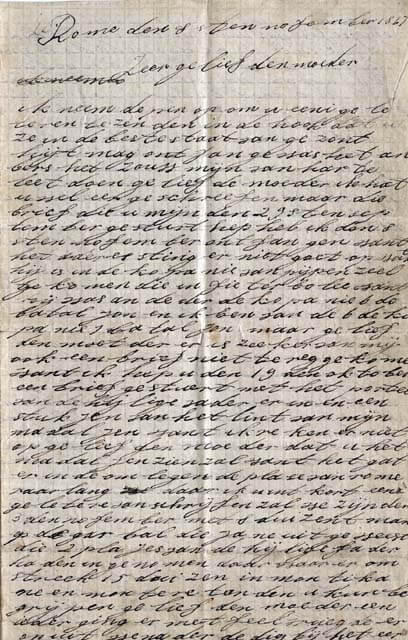 Rome den 8 sten nofember 1867
Zeer ge lief den moeder
ik neem de pen op om u eeni ge le
te ren te zen den in de hoop dat u
ze in de beste staat van ge zont
hijt mag ont fan gen was het an
ders het zouw mijn van har te
leet doen ge lief de moeder ik hat
u wel eer ge schreefen maar die
brief dit u mijn den 29 sten sep
tem ber ge stuurt hep heb ik den 5
sten nofem ber ont fan gen want
het adres sting er niet goet op want
hij is in de ko pa nie van pijpen zeel
ge ko men die in fie ter bo lie want
hij was an de der de ko pa nie 3 de
batal jon en ik ben van de 6 de ko
pa nie 3 ba tal jon maar ge lief
den moet der er is ze ker van mij
ook een brief niet te regge ko me
want ik hep u den 19 den ok to ber
een brief gestuert met het portre
van de hij lige vader er in en een
stuk jen van het lint van mijn
madal jen want ik re ken er niet
op ge lief fen moe den dat u het
madal jen zien zal want het gat
er in de om legen de plaasen van rome
naar lang daar ik u int kort eeni
ge le te ren schrijfen zal we zijn den
3 den nofem ber met 5 duizent man
ga de gar bal die ja ne uit ge weest
die 2 pla jes van de hij lige fa der
ha den in ge no men daar waar er om
streeks 15 dui zen in mon ti ka
ne en mon te re ton den u kan be
grij pen ge lief den moeder een